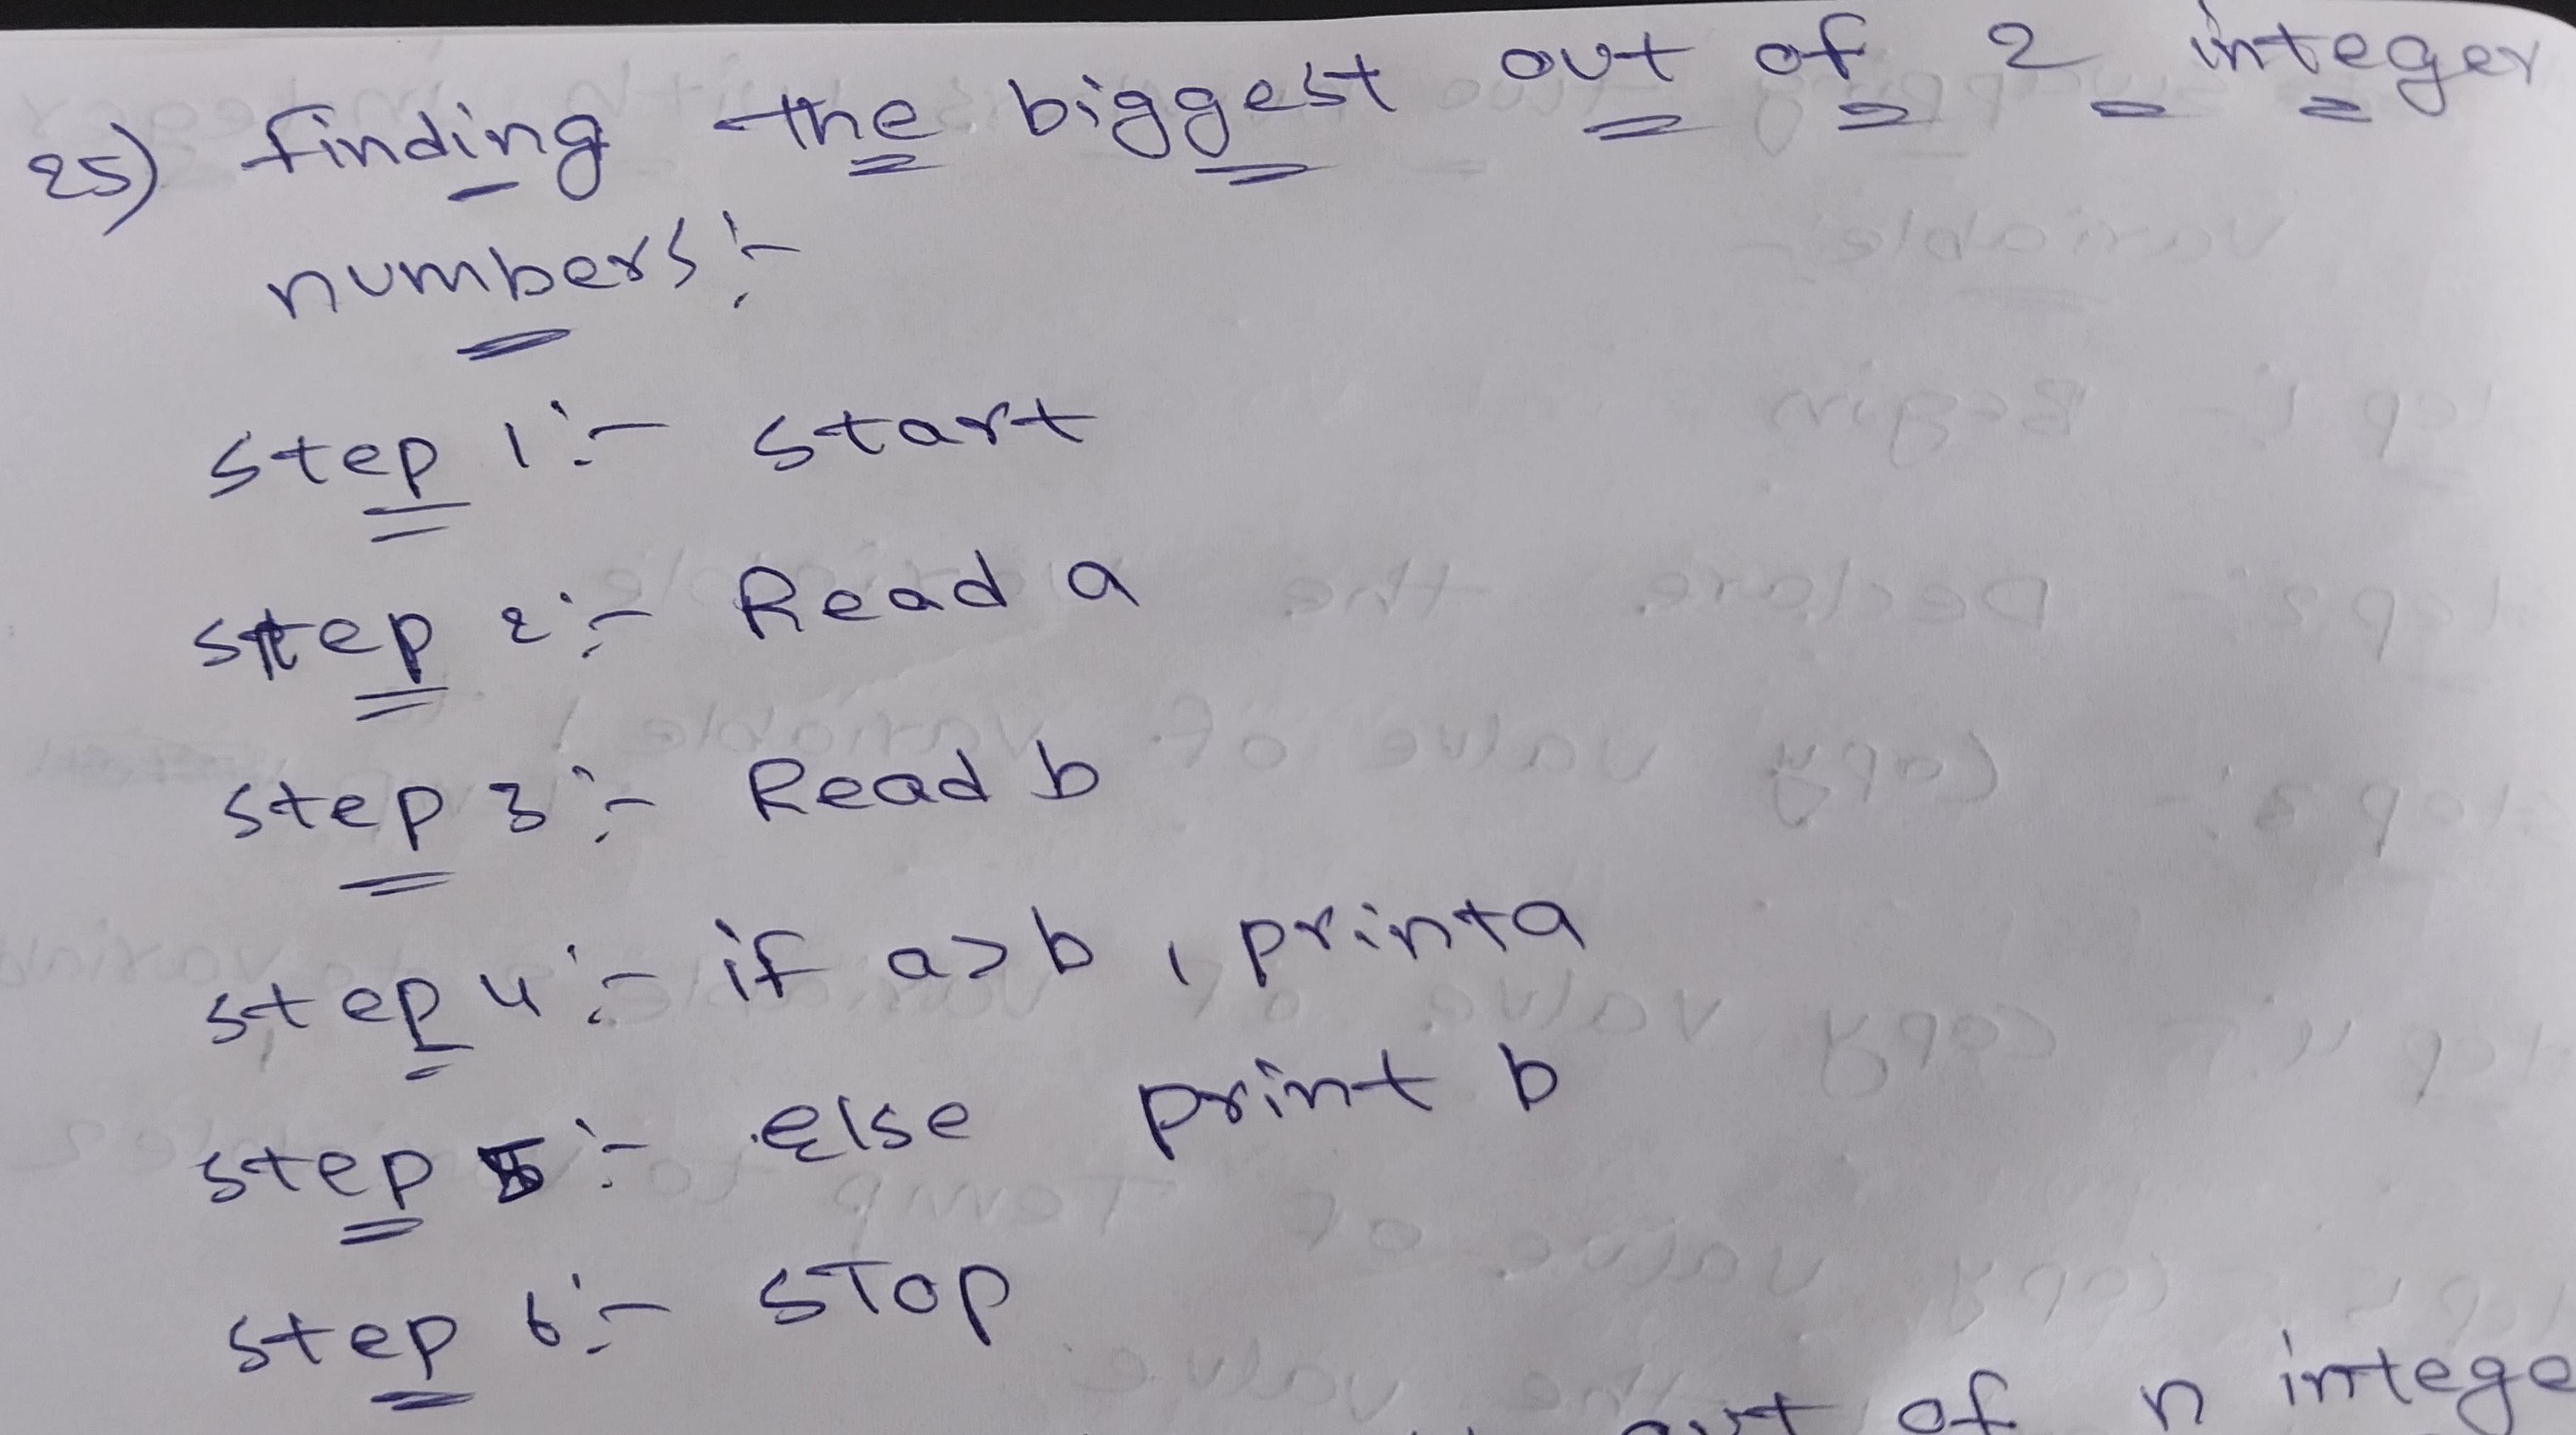 25) finding the biggest out of 2 integer
numbers :-
step 1 :- start
step 2 :- Read a
step 3 :- Read b
step 4 :- if a>b , print a
step 5 :- else print b
step 6 :- STOP
out of n intege